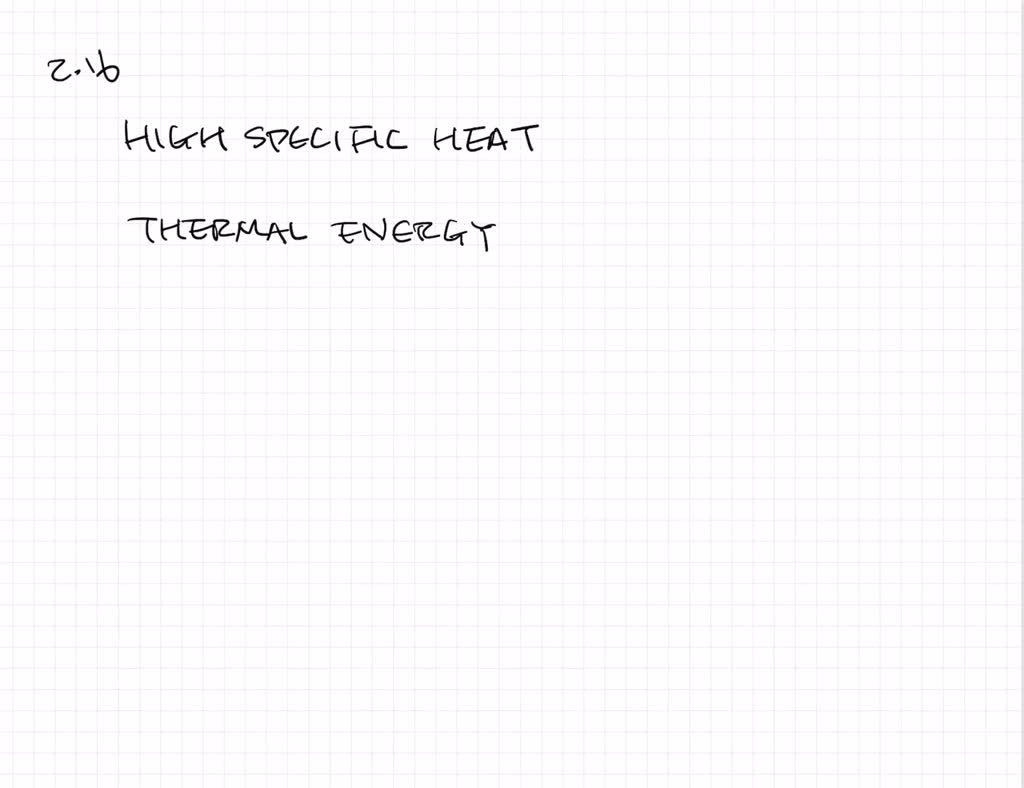 2.16
HIGH SPECIFIC HEAT
THERMAL ENERGY